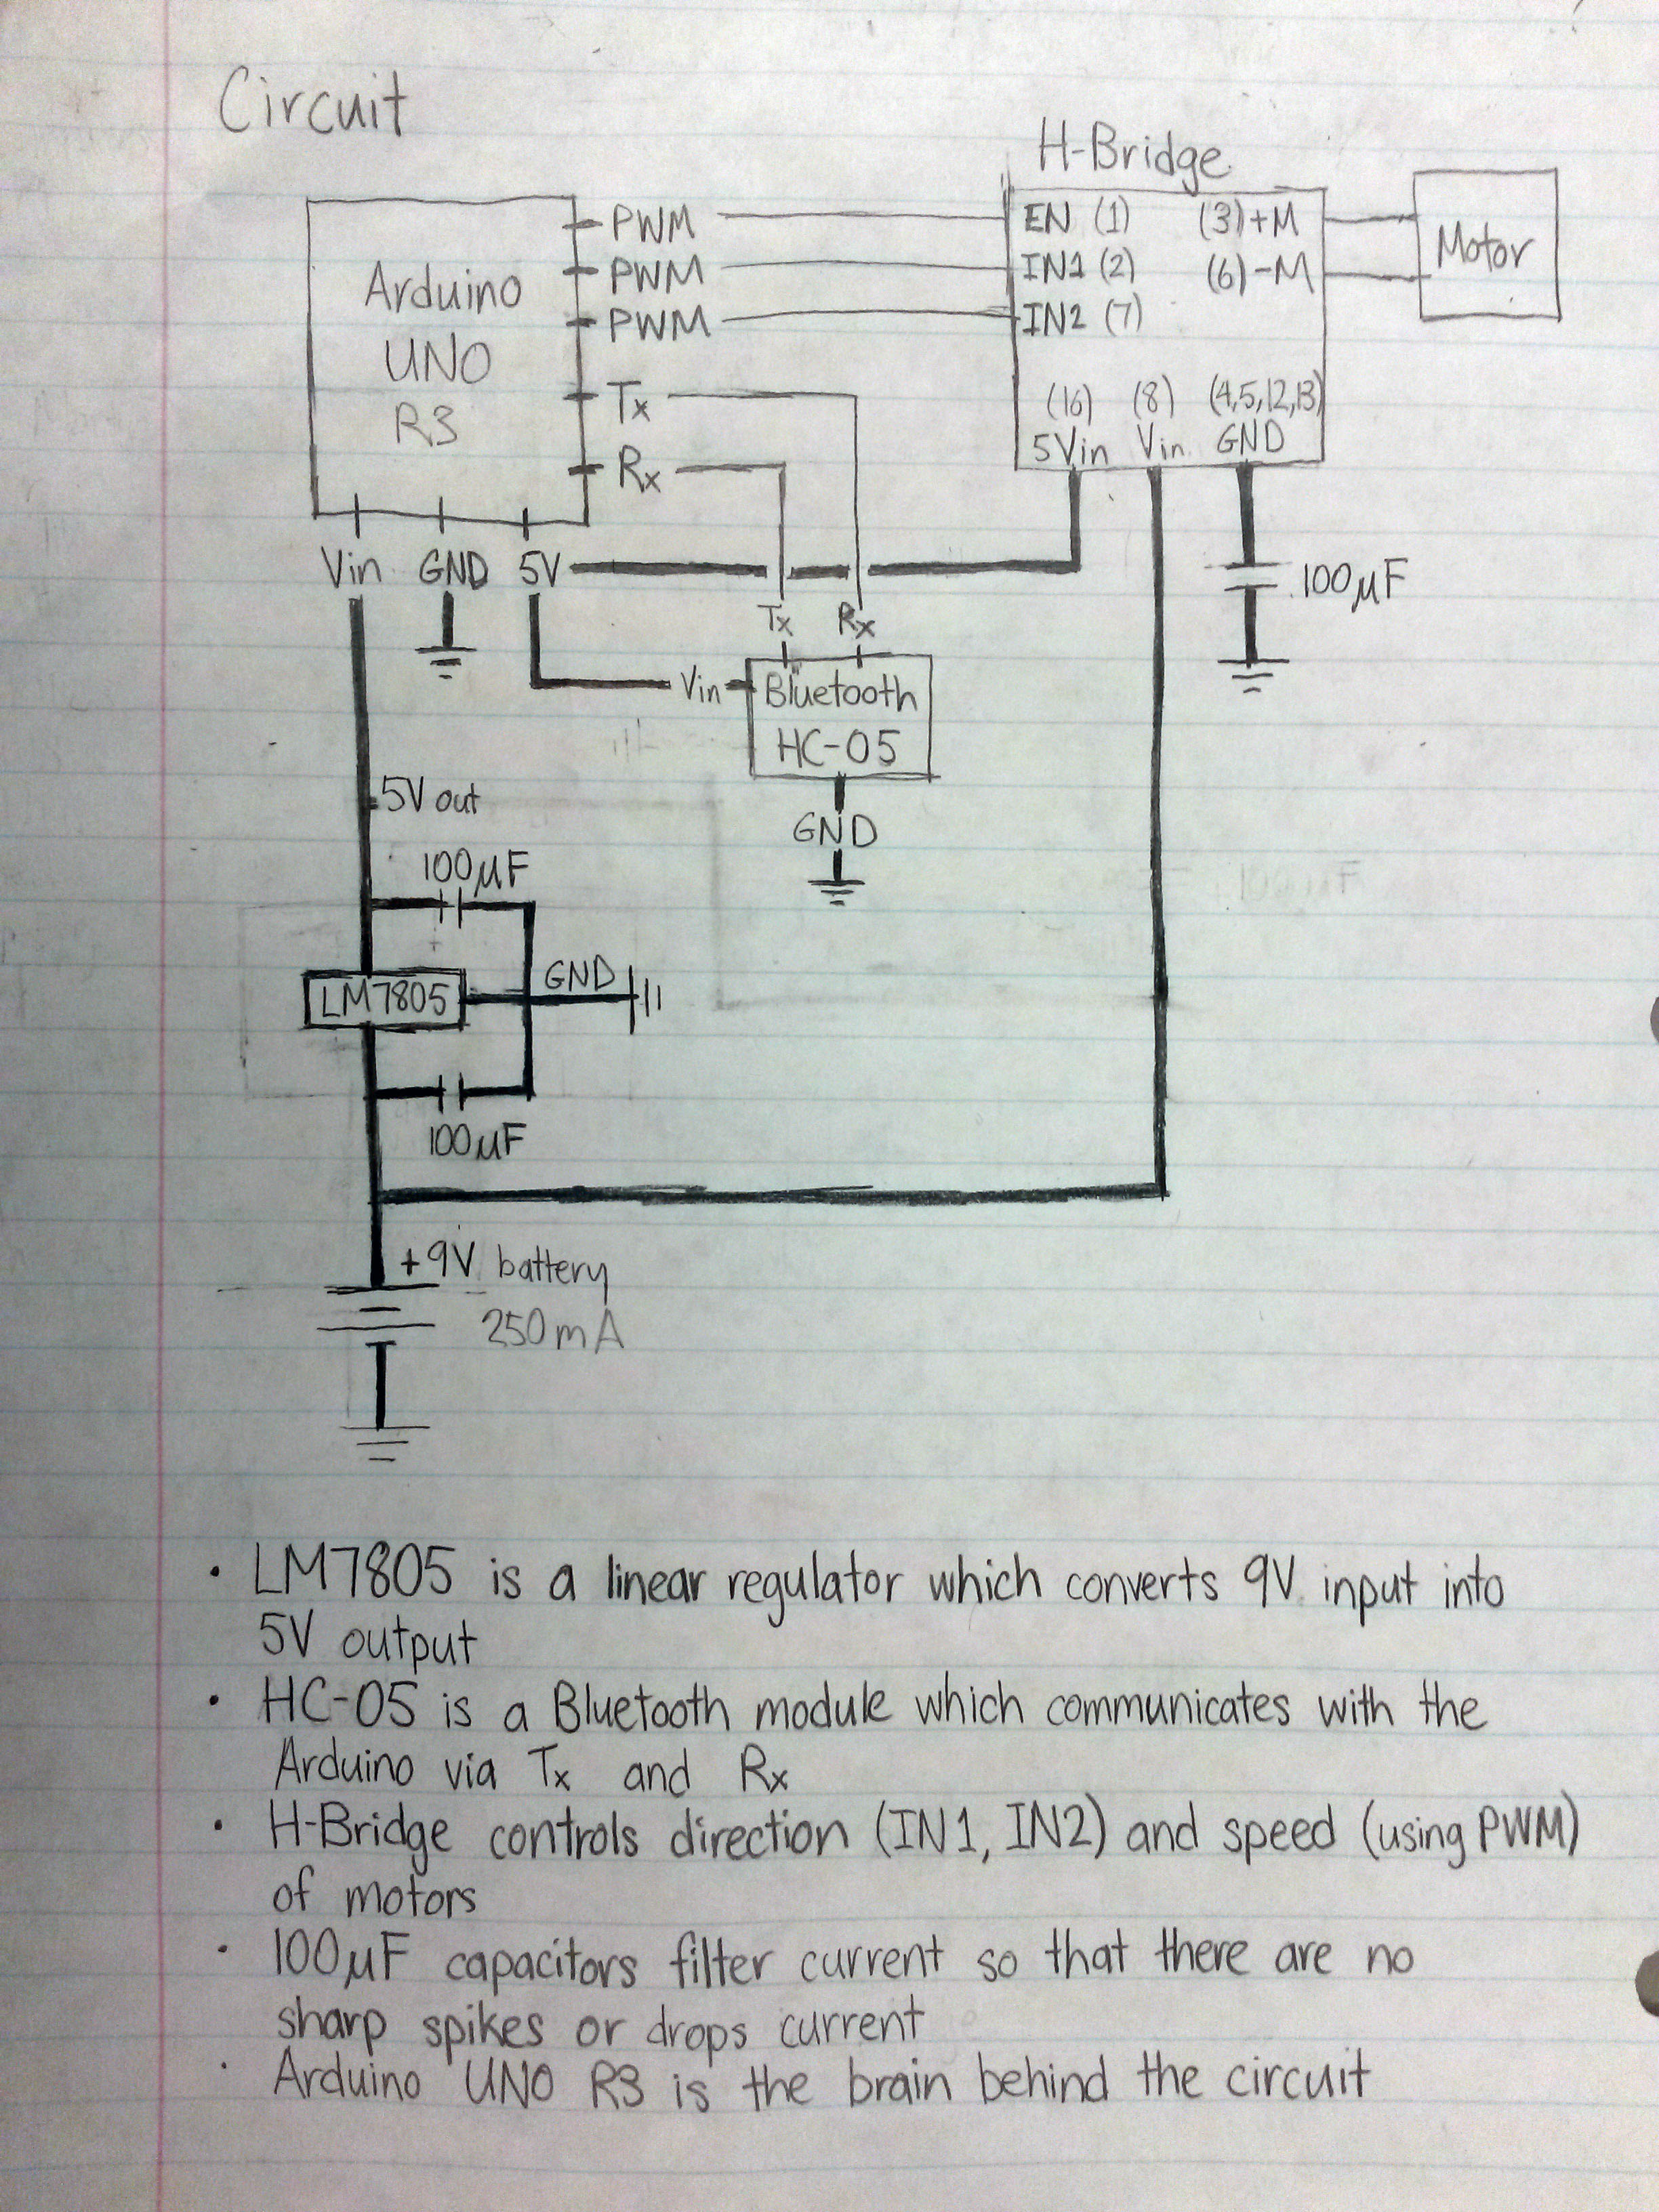 Circuit
H-Bridge
Arduino
UNO
R3
PWM
PWM
PWM
Tx
Rx
EN (1) (3)+M
IN1 (2) (6)-M
IN2 (7)
(16) (8) (4,5,12,13)
5Vin Vin GND
Motor
Vin GND 5V
100μF
Tx Rx
Vin
Bluetooth
HC-05
GND
5V out
100μF
LM7805
GND
100μF
+9V battery
250mA
• LM7805 is a linear regulator which converts 9V input into
5V output
• HC-05 is a Bluetooth module which communicates with the
Arduino via Tx and Rx
• H-Bridge controls direction (IN1, IN2) and speed (using PWM)
of motors
• 100μF capacitors filter current so that there are no
sharp spikes or drops current
• Arduino UNO R3 is the brain behind the circuit